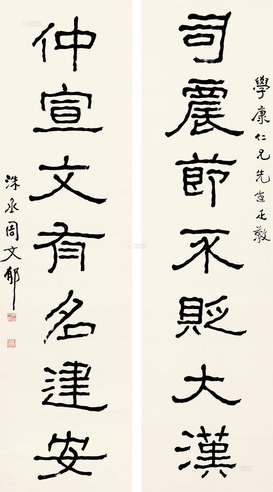 學康仁兄先生正教
司農節不貶大漢
仲宣文有名建安
洙丞周文郁